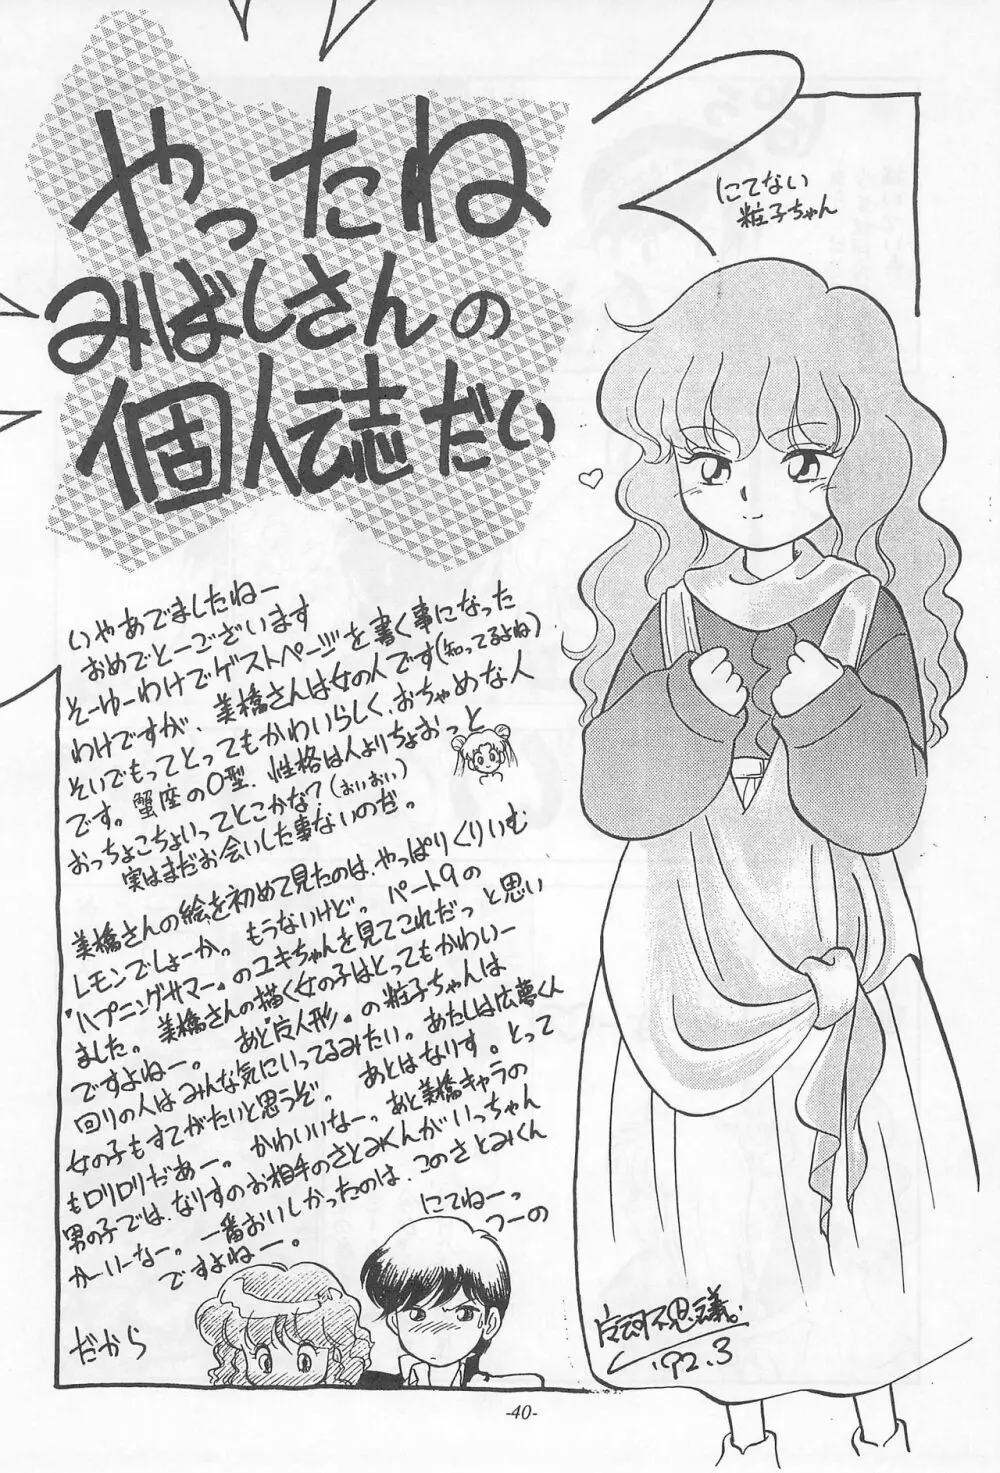 やったね
みばしさんの
個人誌だい
にてない
粧子ちゃん
いやあでましたねー
おめでとーございます
そーゆーわけでゲストページを書く事になった
わけですが、美橋さんは女の人です(知ってるよね)
そいでもってとってもかわいらしく、おちゃめな人
です。蟹座のO型、性格は人よりちょおっと
おっちょこちょいってとこかな?(おいおい)
実はまだお会いした事ないのだ。
美橋さんの絵を初めて見たのは、やっぱりくりいむ
レモンでしょーか。もうないけど。パート9の
『ハプニングサマー』のユキちゃんを見てこれだっと思い
ました。美橋さんの描く女の子はとってもかわいー
ですよねー。あと『 人形』の粧子ちゃんは
回りの人はみんな気にいってるみたい。あたしは広夢くん
女の子もすてがたいと思うぞ。あとはなりす。とって
もロリロリだあー。かわいいなー。あと美橋キャラの
男の子では、なりすのお相手のさとみくんがいっちゃん
かーいーなー。一番おいしかったのは、このさとみくん
ですよねー。
にてねーっ
つーの
だから
不思議。
'92.3
-40-